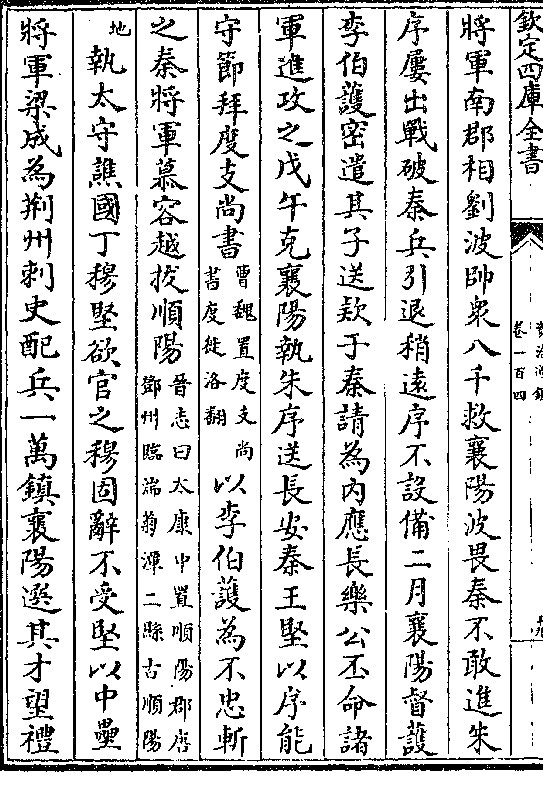 欽定四庫全書
卷一百四
將軍南郡相劉波帥衆八千救襄陽波畏秦不敢進朱
序屢出戰破秦兵引退稍遠序不設備二月襄陽督護
李伯護密遣其子送欵于秦請為内應長樂公丕命諸
軍進攻之戊午克襄陽執朱序送長安秦王堅以序能
守節拜度支尚書曹魏置度支尚書度徙洛翻以李伯護為不忠斬
之秦將軍慕容越拔順陽晉志曰太康中置順陽郡唐鄧州臨湍菊潭二縣古順陽
地執太守譙國丁穆堅欲官之穆固辭不受堅以中壘
將軍梁成為荆州刺史配兵一萬鎮襄陽選其才望禮